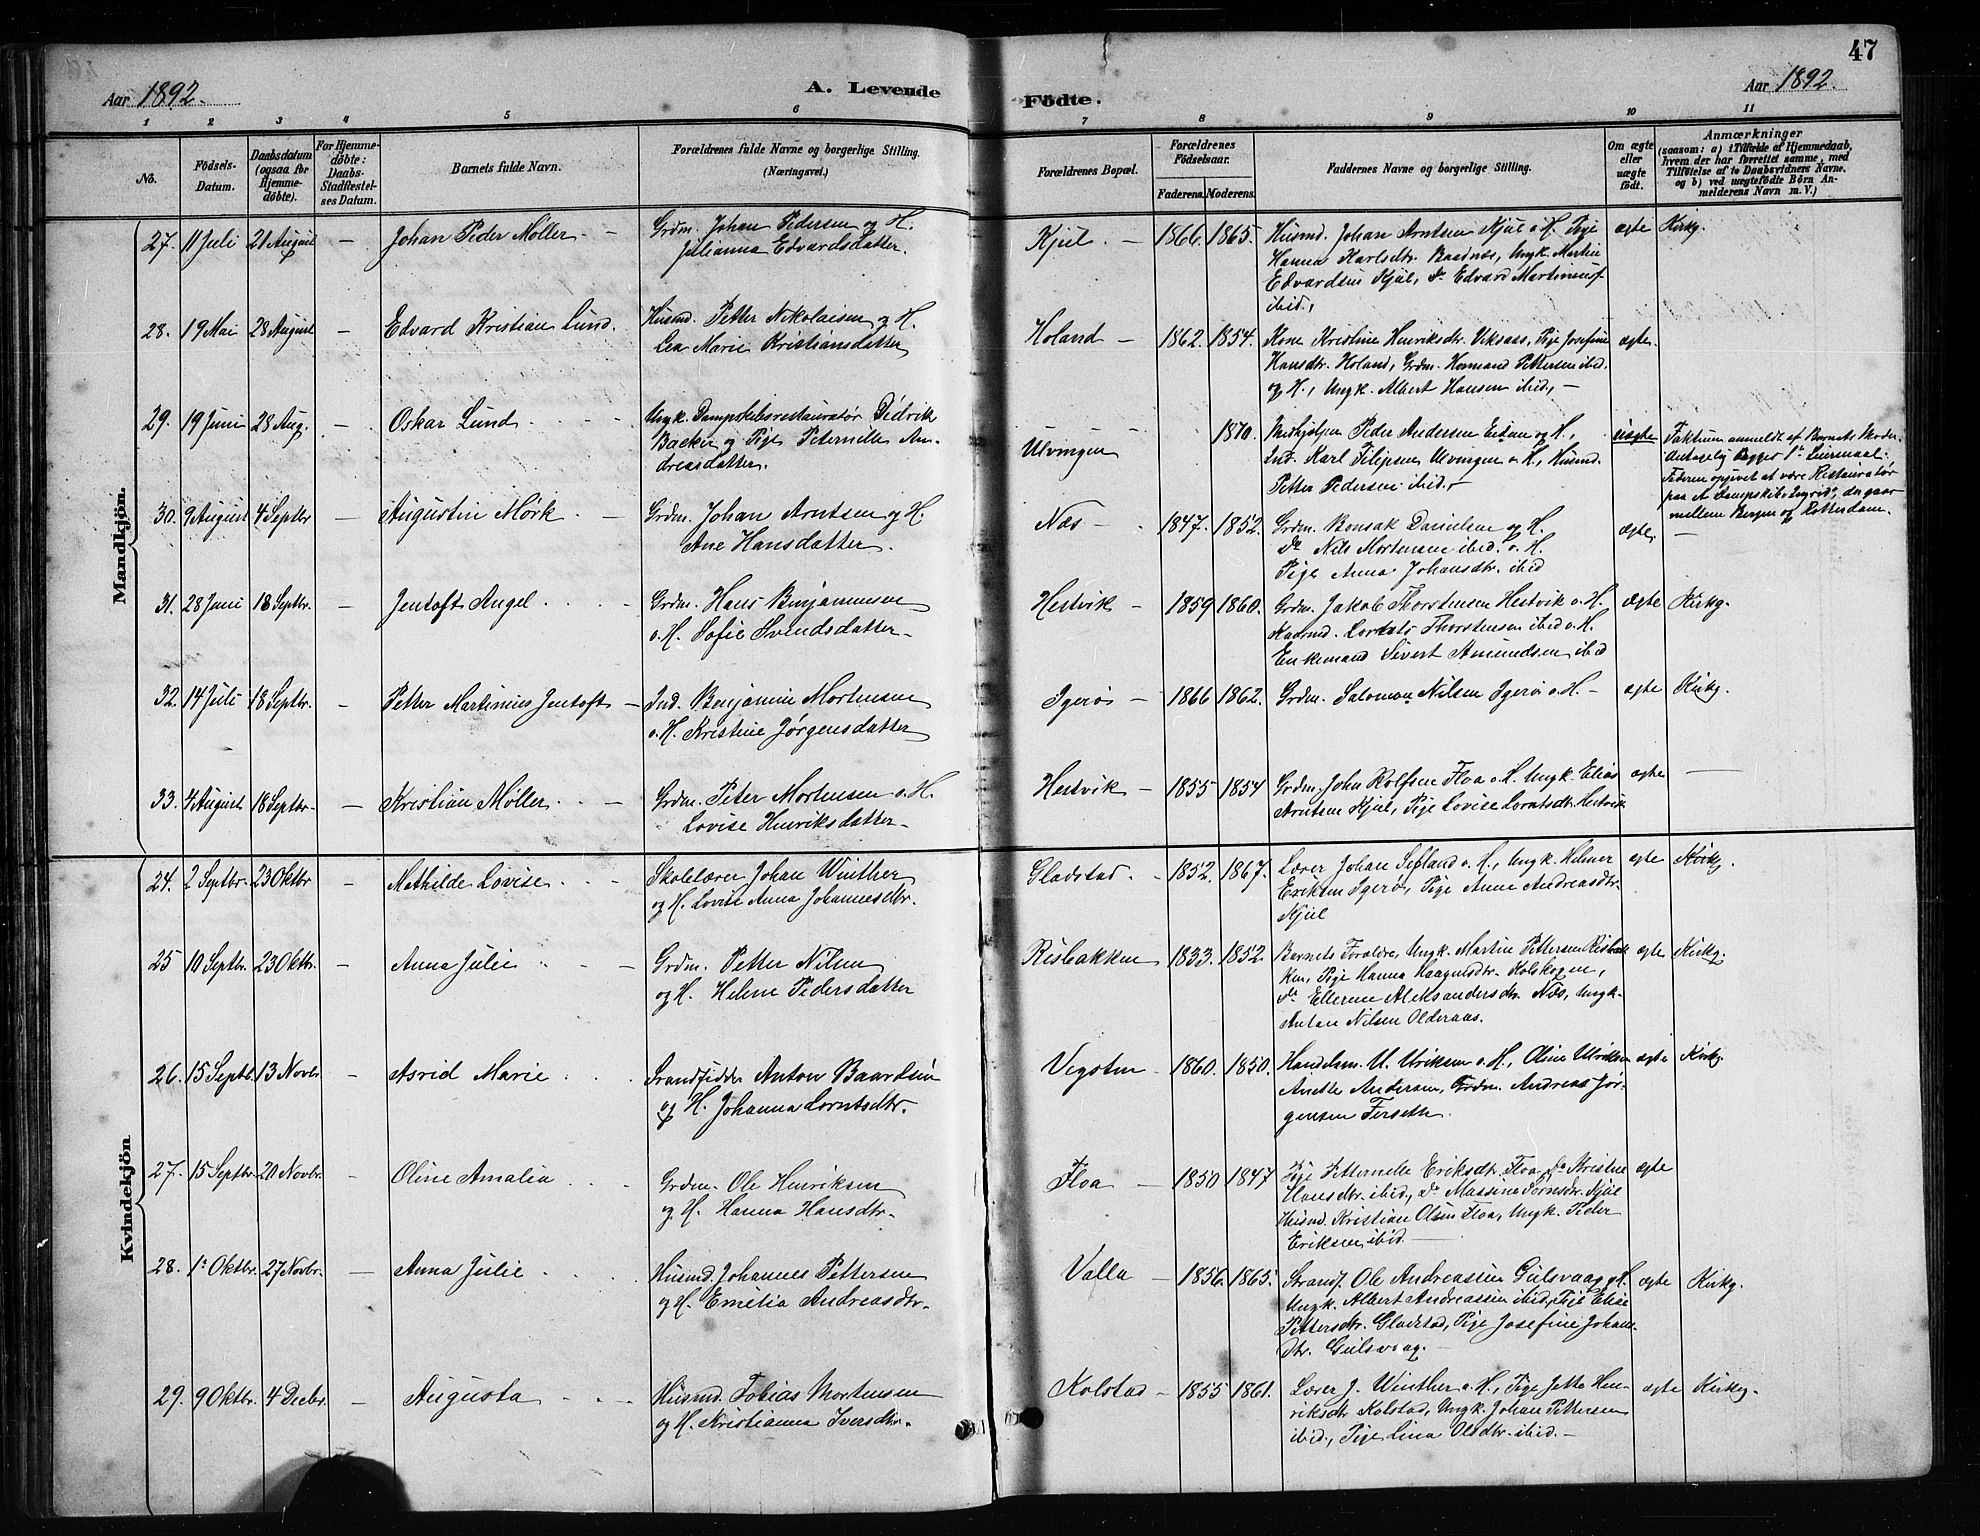 47
Aar 1892.
A. Levende Födte.
Aar 1892.
1 2 3 4 5 6 7 8 9 10 11
No.
Födsels-Datum.
Daabsdatum (ogsaa for Hjemmedöbte).
For Hjemmedöbte: Daabs-Stadfestelses Datum.
Barnets fulde Navn.
Forældrenes fulde Navne og borgerlige Stilling. (Næringsvei.)
Forældrenes Bopæl.
Forældrenes Födselsaar.
Faderens. Moderens.
Faddernes Navne og borgerlige Stilling.
Om ægte eller uægte födt.
Anmærkninger
(saasom: a) i Tilfælde af Hjemmedaab, hvem der har forrettet samme, med Tilföielse af to Daabsvidners Navne. og b) ved uægtefödte Börn Anmelderens Navn m. V.)
Mandkjön.
27. 11 Juli 21 August — Johan Peder Møller — Grdm. Johan Pedersen og H.
Julianna Edvardsdatter.
Kjul — 1866. 1865. Husmd. Johan Arntsen Kjul o. H. Pige
Hanna Karlsdtr. Baadnes, Ungk. Martin
Edvardsen Kjul, Do Edvard Martinus
ibid.,
ægte Kirkg.
28. 19 Mai 28 August — Edvard Kristian Lund. Husmd. Petter Nikolaisen og H.
Lea Marie Kristiansdatter
Holand — 1862. 1854. Kone Kristine Henriksdtr. Viksaas, Pige Josefine
Hansdtr. Holand, Grdm. Hermand Pettersen ibid.
og H., Ungk. Albert Hansen ibid., —
ægte.
29. 19 Juni 28 Aug. — Oskar Lund. Ungk. Dampskibsrestauratør Didrik
Backer og Pige Peternille An-
dreasdatter.
Ulvingen 1870. Peder Andersen og H.,
Ind. Karl Filipsen Ulvingen o. H., Husmd.
Petter Pedersen ibid. —
uægte Faktum anmeldt af Barnets Moder.
Antagelig begges 1ste Leiermaal.
Faderen opgivet at være Restauratør
paa et Dampskib "Ingrid", der gaar
mellem Bergen og Rotterdam.
30. 9 August 4 Septbr — Augustin Mørk — Grdm. Johan Arntsen og H.
Ane Hansdatter.
Næs — 1847. 1852. Grdm. Bonsak Danielsen og H.
Do Nils Mortensen ibid. o. H.
Pige Anna Johansdtr. ibid
ægte. —
31. 28 Juni 18 Septbr. — Jentoft Angel Grdm. Hans Benjaminsen
o. H. Sofie Svendsdatter —
Hestvik — 1859 1860. Grdm. Jakob Thorstensen Hestvik o. H.
Lorents Thorstensen ibid o. H.
Enkemand Sivert Amundsen ibid
ægte Kirkg.
32. 14 Juli 18 Septbr. — Petter Martinius Jentoft — Ind. Benjamin Mortensen
o. H. Kristine Jørgensdatter
Igerø — 1866 1862. Grdm. Salomon Nilsen Igerø o. H. —
ægte Kirkg.
33. 4 August 18 Septbr. — Kristian Møller — Grdm. Peter Mortensen o. H.
Lovise Henriksdatter —
Hestvik — 1855 1854 Grdm. John Rolfsen Floa o. H. Ungk. Elias
Arntsen Kjul, Pige Lovise Lorntsdtr. Hestvik
ægte —
Kvindekjön.
24. 2 Septbr. 23 Oktbr — Mathilde Lovise — Skolelærer Johan Winther
og H. Lovise Anna Johannesdtr.
Gladstad. — 1852. 1867. Lærer Johan Søfland o. H., Ungk. Helmer
Eriksen Igerø, Pige Anne Andreasdtr.
Kjul
ægte Kirkg.
25 10 Septbr. 23 Oktbr. — Anna Julie — Grdm. Petter Nilsen
og H. Helene Pedersdatter
Risbakken — 1833. 1852. Barnets Foreldre, Ungk. Martin Pettersen Risbak-
ken, Pige Hanna Haagensdtr. Holskogen,
do Ellerine Aleksandersdtr. Næs, Ungk.
Anton Nilsen Olderaas.
ægte Kirkg.
26. 15 Septb. 13 Novbr — Astrid Marie Strandsidder Anton Baardsen
og H. Johanna Lorntsdtr.
Vegsten — 1860. 1850. Handelsm. U. Ulriksen o. H., Oline Ulriksen
Anette Andersen, Grdm. Andreas Jør-
gensen Ferseth.
ægte Kirkg.
27. 15 Septbr. 20 Novbr. — Oline Amalia Grdm. Ole Henriksen
og H. Hanna Hansdtr.
Floa — 1850 1847 Pige Petternelle Eriksdtr. Floa, Do Kristine
Hansdtr. ibid., Do Massine Kjul
Husmd. Kristian Olsen Floa, Ungk. Peder
Eriksen ibid. —
ægte
28. 1ste Oktbr. 27 Novbr. — Anna Julie Husmd. Johannes Pettersen
og H. Emelia Andreasdtr.
Valla — 1856. 1865. Strands. Ole Andreassen Gulsvaag o. H.
Ungk. Albert Andreassen ibid., Pige Elise
Pettersdtr. Gladstad, Pige Josefine Johans-
dtr. Gulsvaag. —
ægte Kirkg.
29. 9 Oktbr. 4 Decbr. — Augusta Husmd. Tobias Mortensen
og H. Kristianna Iversdtr. —
Kolstad — 1855 1861. Lærer J. Winther o. H., Pige Jette Hen-
riksdtr Kolstad, Ungk. Johan Pettersen
ibid., Pige Lina Olsdtr. ibid. —
ægte Kirkg.